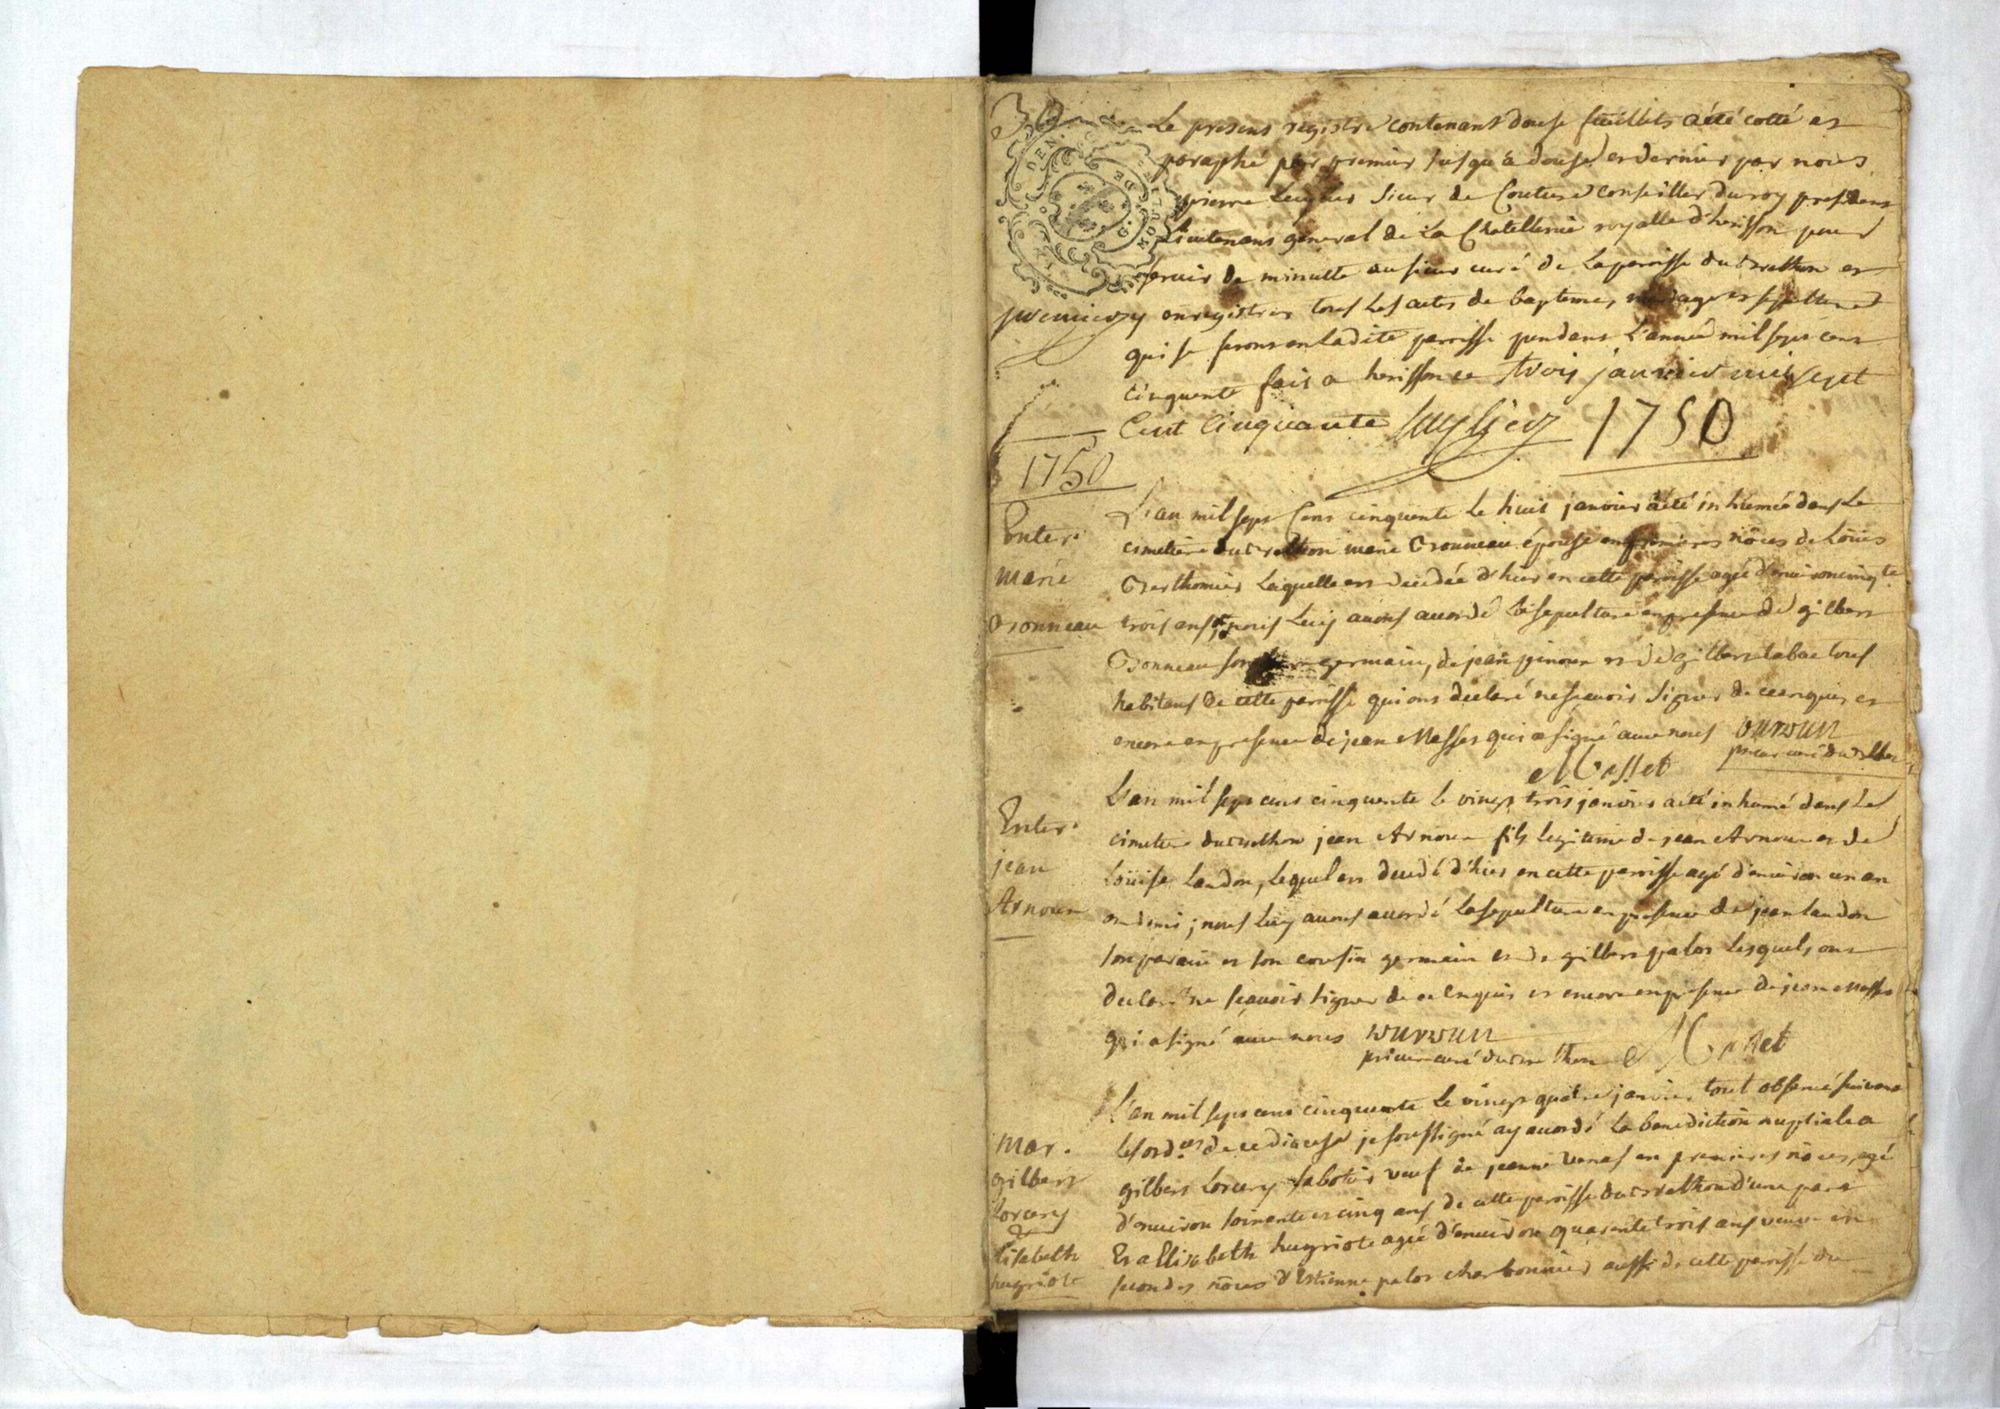 Le present registre contenant douse feuillets a été cotté et
paraphé par premier jusqu'a douse et dernier par nous
pierre sieur de Couture conseiller du roy president
Lieutenant general de La Chatellenie royalle d'herisson pour
servir de minutte au sieur curé de La paroisse du brethon et
premier
y enregistrer tous Les actes de baptemes, mariages et sepultures
qui se feront en ladite paroisse pendant L'année mil sept cent
cinquante fait a herisson ce trois janvier mil sept
Cent Cinquante 1750
1750
Enter.
marie
bonneau
L'an mil sept Cent cinquante Le huit janvier a été inhumée dans Le
cimetiere du brethon marie bonneau épouse en premieres nôces de Loüis
berthomier Laquelle est decedée d'hier en cette paroisse agée d'environ cinq.te
trois ans, nous Luy avons accordé La sepulture en presence de gilbert
bonneau son germain, de jean et de gilbert tabac tous
habitans de cette paroisse qui ont declaré ne sçavoir signer de ce enquis, et
encore en presence de jean Masset qui a signé avec nous
prieur curé du brethon
Masset
Enter.
jean
Arnoux
L'an mil sept cent cinquante le vingt trois janvier a été inhumé dans Le
cimetiere du brethon jean Arnoux fils legitime de jean Arnoux et de
Loüise Landon, Lequel est decedé d'hier en cette paroisse agé d'environ un an
et demi; nous Luy avons accordé La sepulture en presence de jean Landon
son parain et son cousin germain et de gilbert palos Lesquels ont
declaré ne sçavoir signer de ce enquis et encore en presence de jean Masset
qui a signé avec nous
prieur curé du brethon Masset
Mar.
gilbert
Lorcery
&
Elisabeth
hugriote
L'an mil sept cent cinquante Le vingt quatre janvier, tout observé suivant
les ord.ces de ce diocese je soussigné ay accordé La benediction nuptiale a
gilbert Lorcery sabotier veuf de jeanne en premieres nôces, agé
d'environ soixante et cinq ans de cette paroisse du brethon d'une part
Et a Elisabeth hugriote agée d'environ quarente trois ans veuve en
secondes nôces d'Estienne palos charbonnier aussi de cette paroisse du